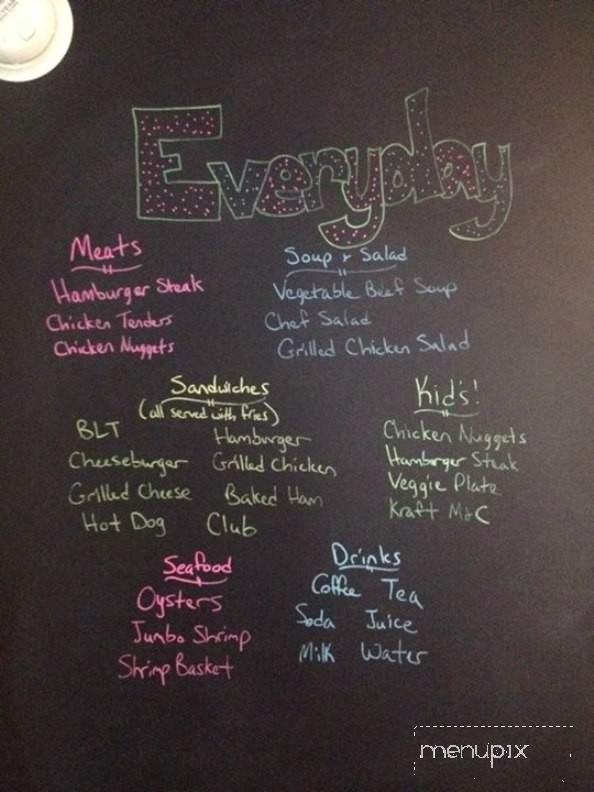 Everyday
Meats
Hamburger Steak
Chicken Tenders
Chicken Nuggets
Soup & Salad
Vegetable Beef Soup
Chef Salad
Grilled Chicken Salad
Sandwiches
(all served with fries)
BLT Hamburger
Cheeseburger Grilled Chicken
Grilled Cheese Baked Ham
Hot Dog Club
Kid's!
Chicken Nuggets
Hamburger Steak
Veggie Plate
Kraft M&C
Seafood
Oysters
Jumbo Shrimp
Shrimp Basket
Drinks
Coffee Tea
Soda Juice
Milk Water
menupix